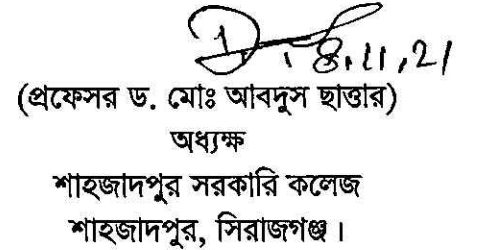 8.11.21
(প্রফেসর ড. মোঃ আবদুস ছাত্তার)
অধ্যক্ষ
শাহজাদপুর সরকারি কলেজ
শাহজাদপুর, সিরাজগঞ্জ।